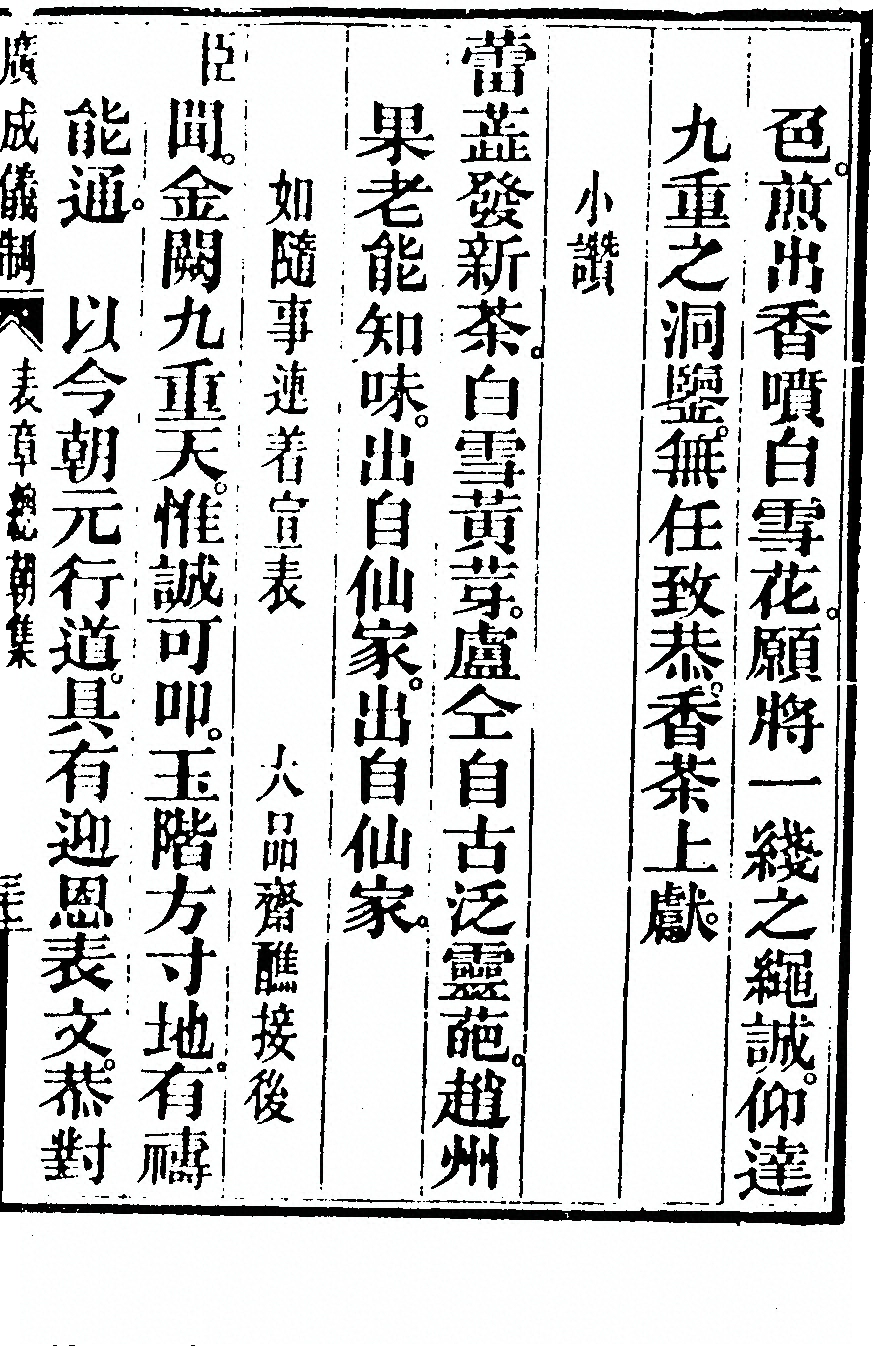 色。煎出香噴白雪花。願將一綫之繩誠。仰達
九重之洞鑒。無任致恭。香茶上獻。
小讚
蕾蕋發新茶。白雪黃芽。盧仝自古泛靈葩。趙州
果老能知味。出自仙家。出自仙家。
如隨事連着宣表　大品齋醮接後
臣聞。金闕九重天。惟誠可叩。玉階方寸地。有禱
能通。　以今朝元行道。具有迎恩表文。恭對
廣成儀制　表章總朝集